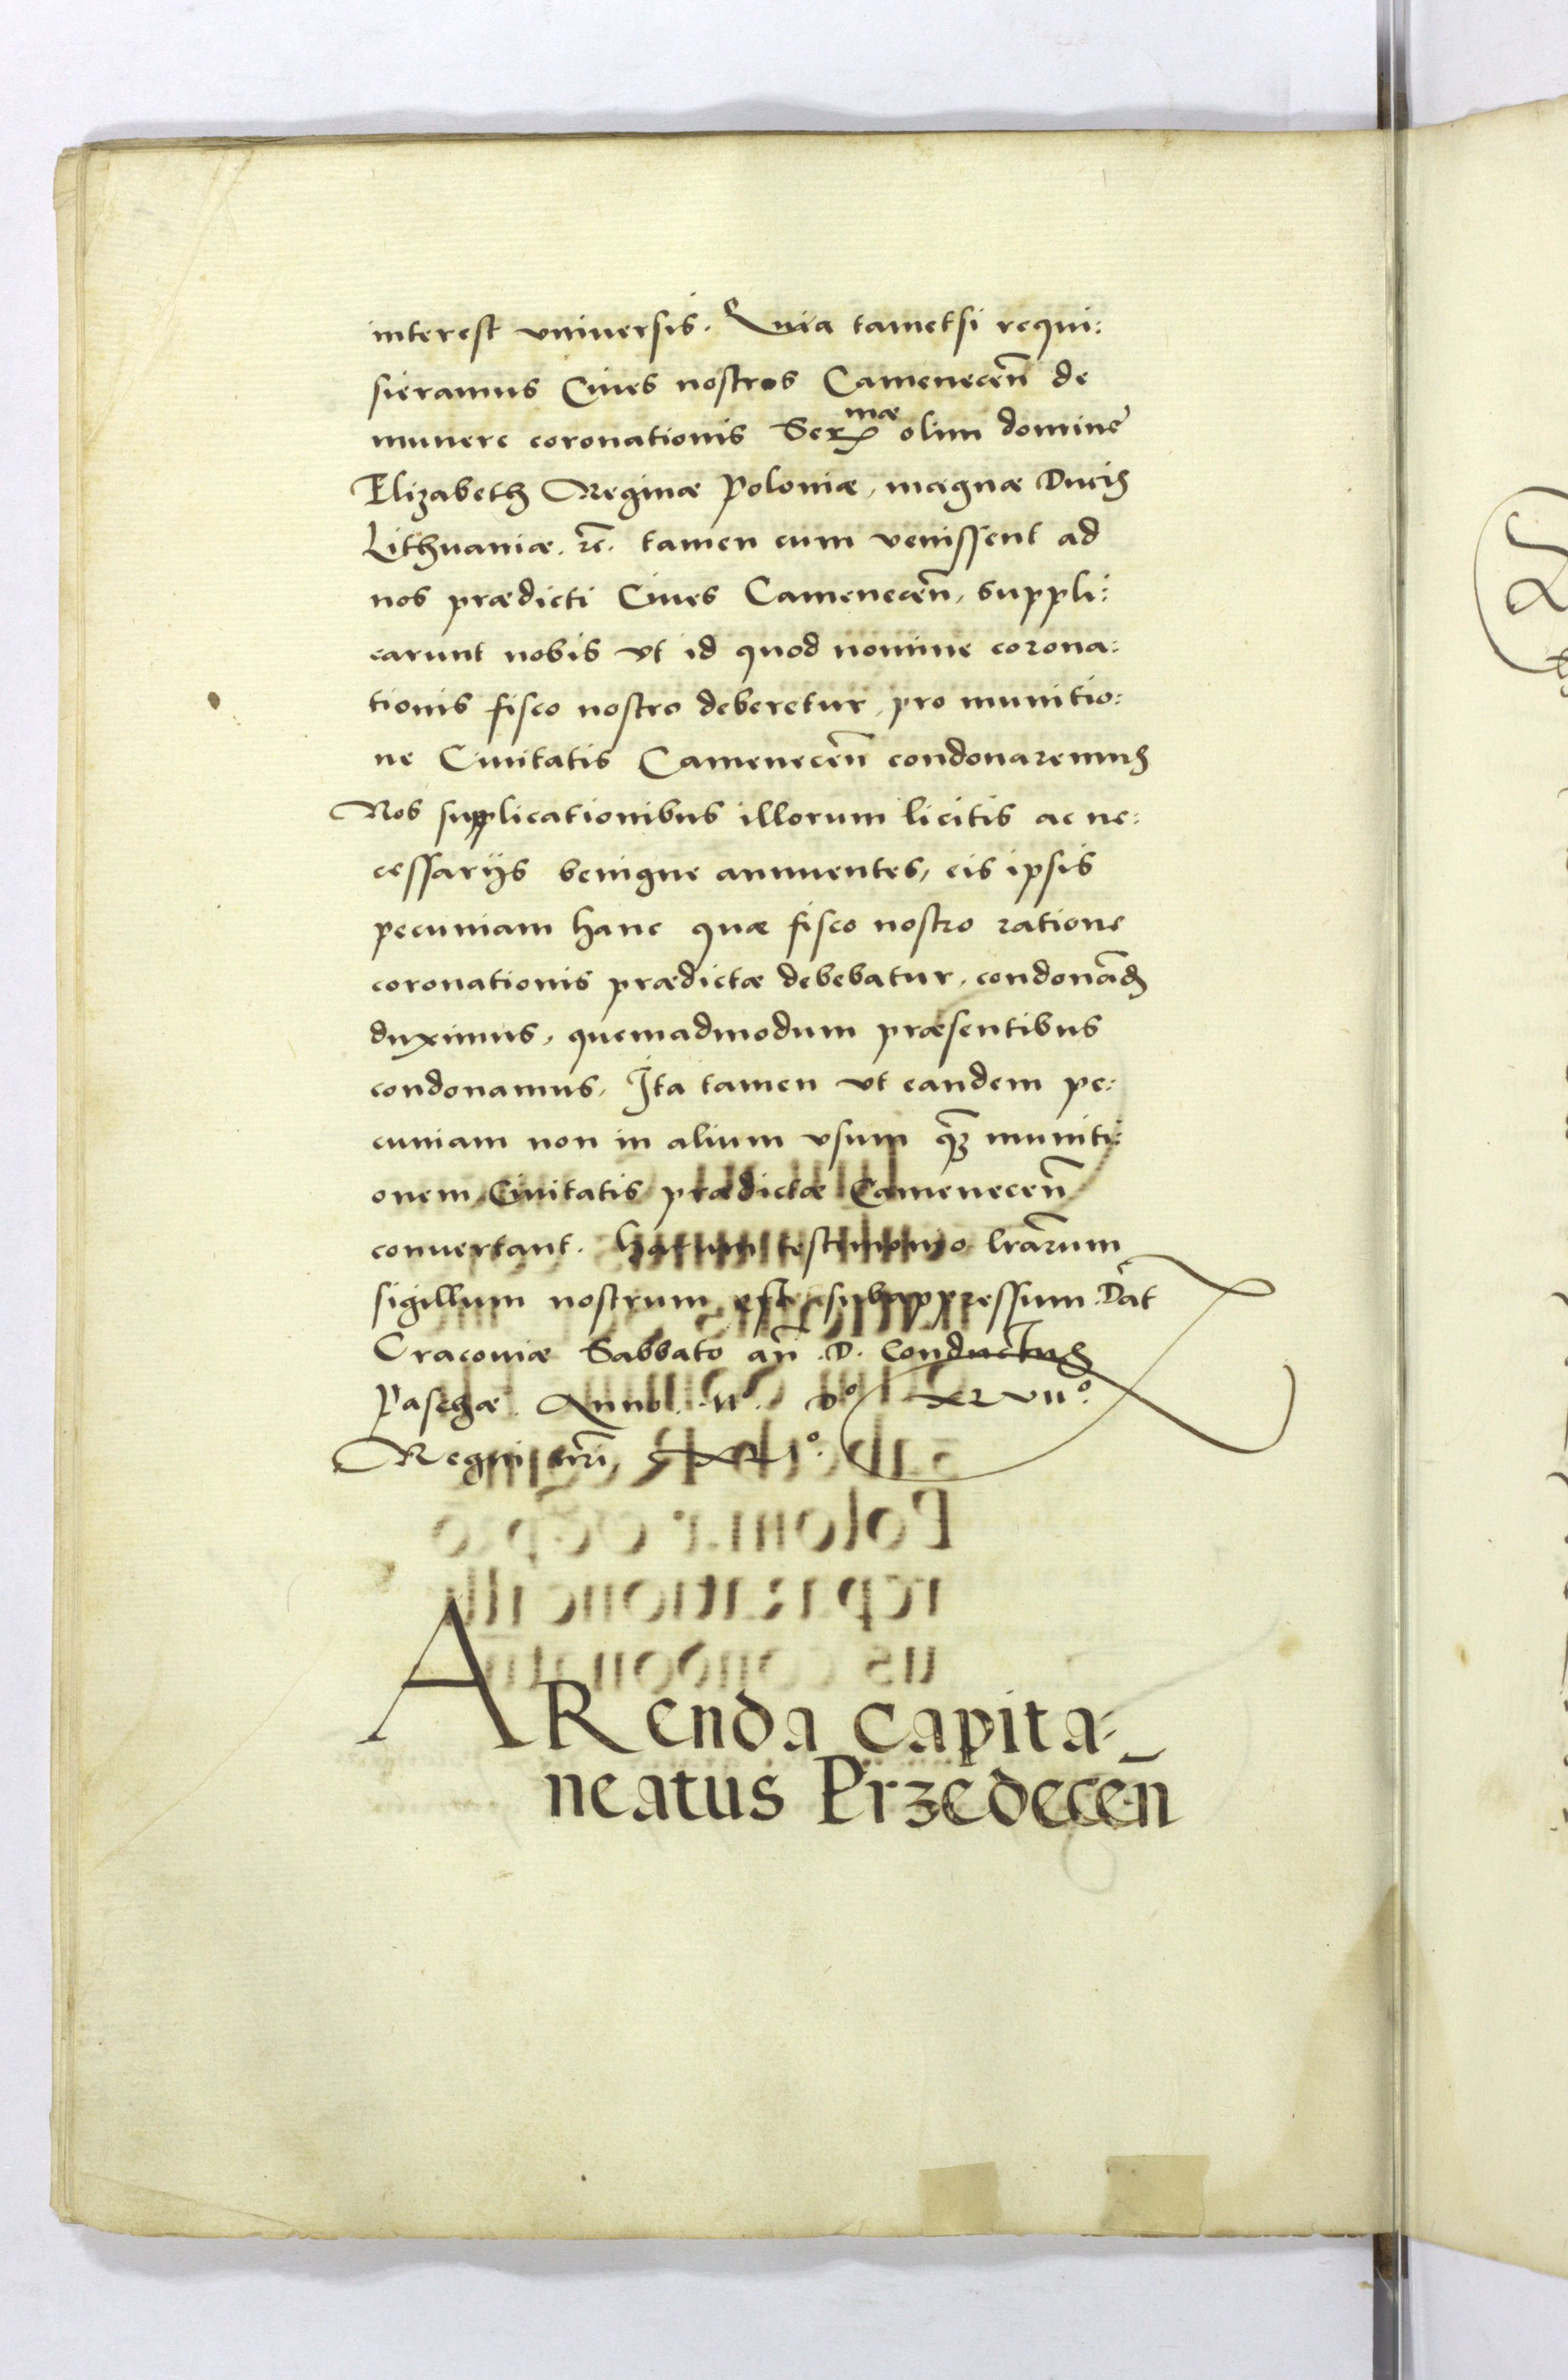 interest vniuersis. Quia tametsi requi:
sieramus Ciues nostros Camenecen̄ de
munere coronationis Ser^mæ olim dominę
Elizabeth Reginæ Poloniæ, magnæ Ducis
Lithuaniæ. rc̄. tamen cum venissent ad
nos prædicti Ciues Camenecen̄, suppli:
carunt nobis vt id quod nomine corona:
tionis fisco nostro deberetur, pro munitio:
ne Ciuitatis Camenecen̄ condonaremus
Nos supplicationibus illorum licitis ac ne:
cessarijs benigne annuentes, eis ipsis
pecuniam hanc quæ fisco nostro ratione
coronationis prædictæ debebatur, condonād
duximus, quemadmodum præsentibus
condonamus. Ita tamen vt eandem pe:
cuniam non in alium vsum q̄ȝ muniti:
onem Ciuitatis prædictæ Camenecen̄
conuertant. Harum testimonio lrārum
sigillum nostrum est subappressum. Dat̄
Cracouiæ Sabbato an̄ .D. Conductus
Paschæ. Anno. M°. D° XLVII°.
Regni nr̄i XLI°.
ARenda capita-
neatus Przedecen̄